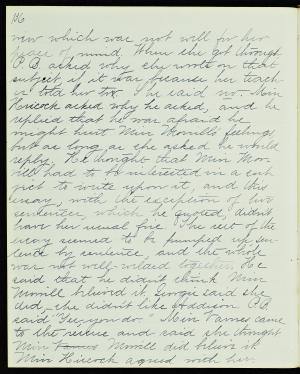 186
view which was not well for her
peace of mind. When she got through
P.B. asked why she wrote on that
subject, if it was because her teach-
er told her to? she said no. Miss
Hiscock asked why he asked, and he
replied that he was afraid he
might hurt Miss Morrill's feelings
but as long as she asked he would
reply. He thought that Miss Mor-
rill had to be interested in a sub-
ject to write upon it, and this
essay, with the exception of two
sentences, which he quoted, didn't
have her usual fire. The rest of the
essay seemed to be pumped up, sen-
tence by sentence, and the whole
was not well welded together. He
said that he didn't think Miss
Morrill liked it. Georgie said she
did, she didn't like Addison. P.B.
said "Yes, you do." Miss James came
to the rescue and said she thought
Miss James Morrill did like it.
Miss Hiscock agreed with her.